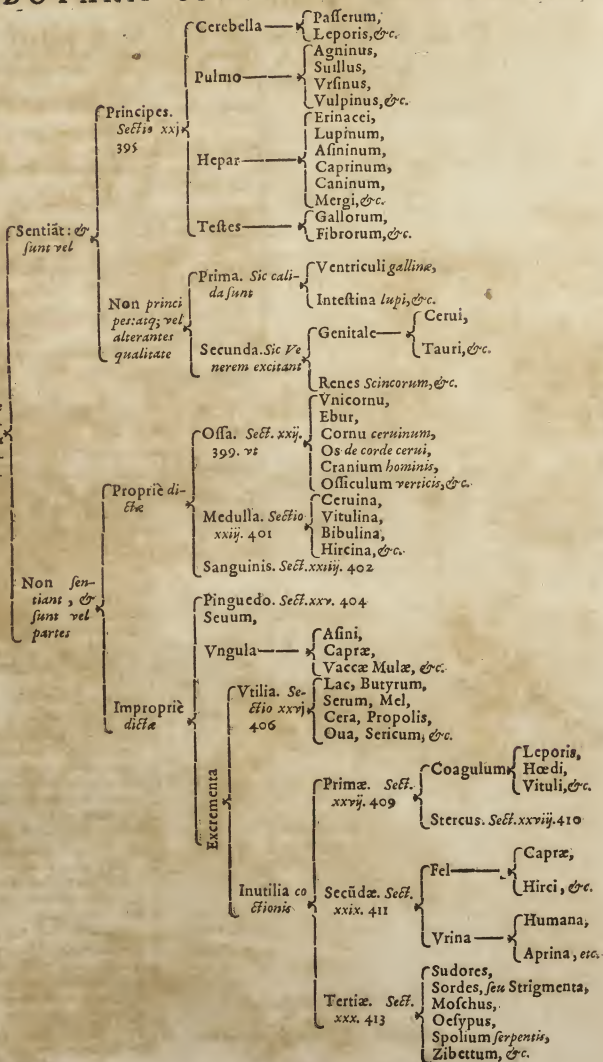 Sentiāt: &
sunt vel
Principes.
Sectio xxj
395
Cerebella
Passerum,
Leporis, &c.
Pulmo
Agninus,
Suillus,
Vrsinus,
Vulpinus, &c.
Hepar
Erinacei,
Lupinum,
Asininum,
Caprinum,
Caninum,
Mergi, &c.
Testes
Gallorum,
Fibrorum, &c.
Non princi
pes: atq; vel
alterantes
qualitate
Prima. Sic cali-
da sunt
Ventriculi gallinæ,
Intestina lupi, &c.
Secunda. Sic Ve
nerem excitant
Genitale
Cerui,
Tauri, &c.
Renes Scincorum, &c.
Non sen-
tiant, &
sunt vel
partes
Propriè di-
ctæ
Ossa. Sect. xxij.
399. vt
Vnicornu,
Ebur,
Cornu ceruinum,
Os de corde cerui,
Cranium hominis,
Officulum verticis, &c.
Medulla. Sectio
xxiij. 401
Ceruina,
Vitulina,
Bibulina,
Hircina, &c.
Sanguinis. Sect. xxiiij. 402
Impropriè
dictæ
Pinguedo. Sect. xxv. 404
Seuum,
Vngula
Asini,
Capræ,
Vaccæ Mulæ, &c.
Excrementa
Vtilia. Se-
ctio xxvj
406
Lac, Butyrum,
Serum, Mel,
Cera, Propolis,
Oua, Sericum, &c.
Inutilia co
ctionis
Primæ. Sect.
xxvij. 409
Coagulum
Leporis,
Hœdi,
Vituli, &c.
Stercus. Sect. xxviij. 410
Secūdæ. Sect.
xxix. 411
Fel
Capræ,
Hirci, &c.
Vrina
Humana,
Aprina, etc.
Tertiæ. Sect.
xxx. 413
Sudores,
Sordes, seu Strigmenta,
Moschus,
Oesypus,
Spolium serpentis,
Zibettum, &c.